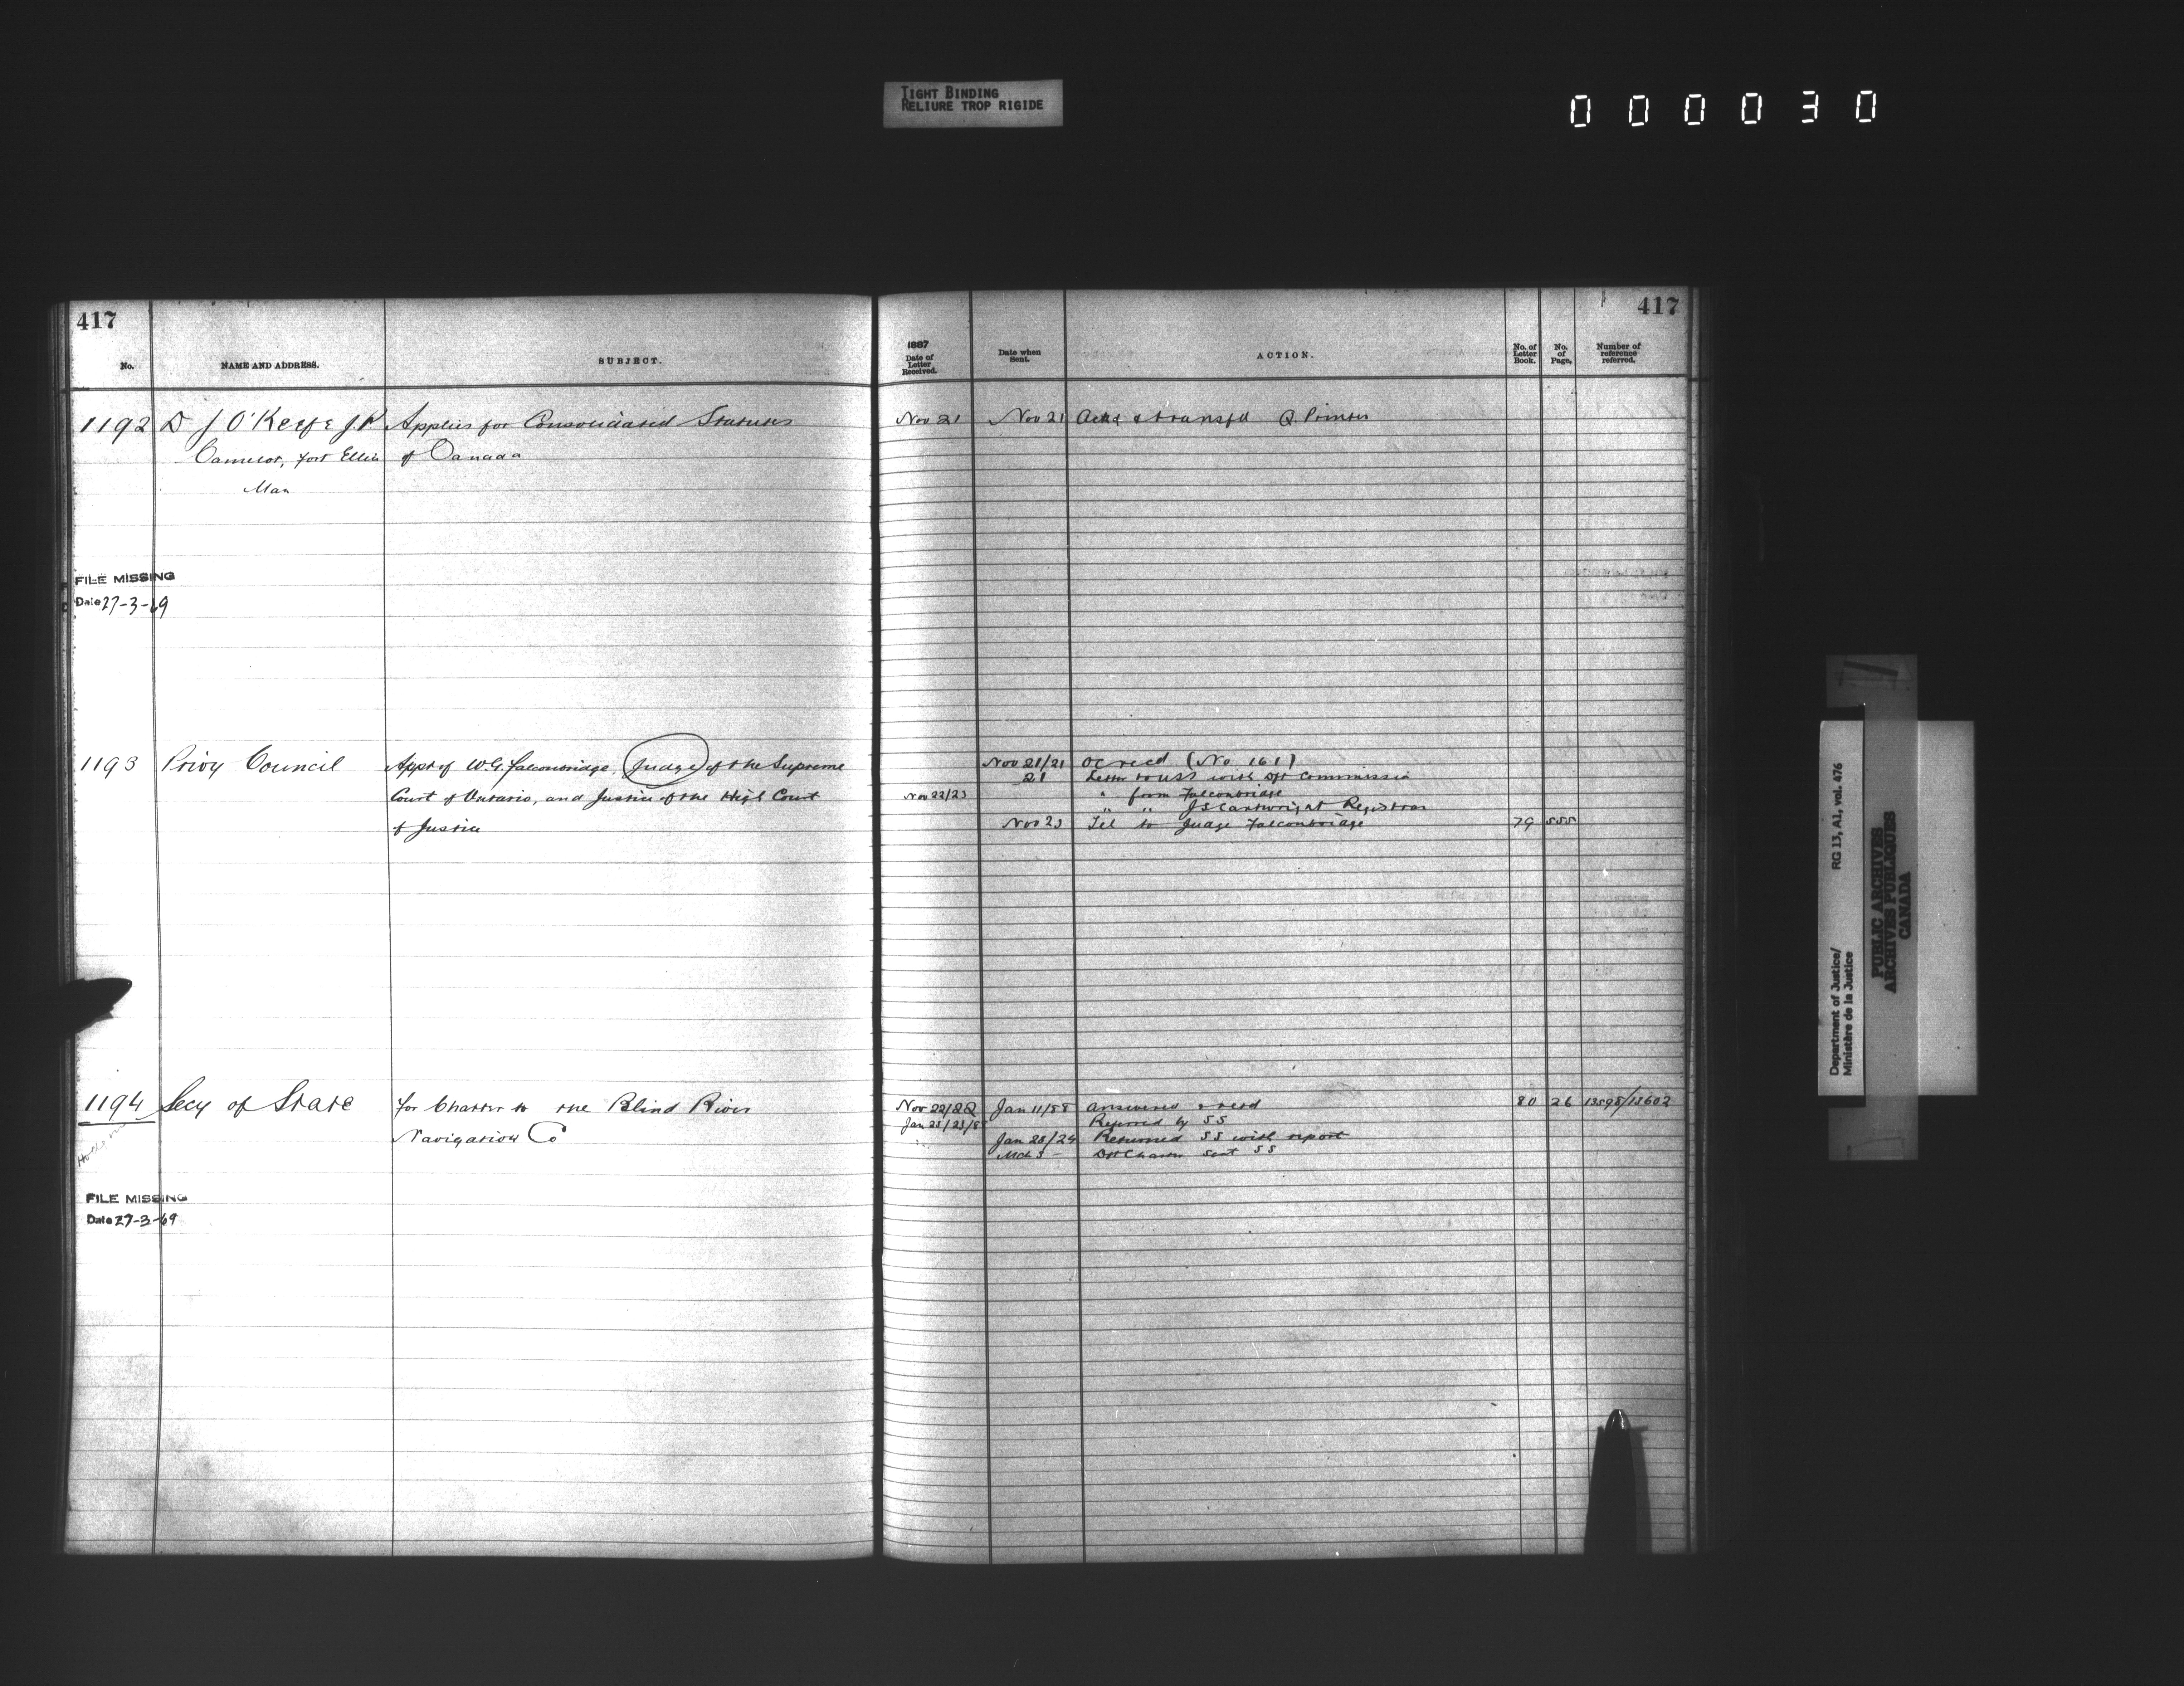 TIGHT BINDING
RELIURE TROP RIGIDE
000030
417
No.
NAME AND ADDRESS.
SUBJECT.
1192 D J O'Keefe J.P. Applies for Consolidated Statutes
Camelot, Fort Ellice of Canada
Man
FILE MISSING
Date 27-3-69
1193 Privy Council Appt of W.G. Falconbridge, Judge of the Supreme
Court of Ontario, and Justice of the High Court
of Justice
1194 Secy of State For Charter to the Blind River
Navigation Co
FILE MISSING
Date 27-3-69
417
1887
Date of
Letter
Received.
Date when
Sent.
ACTION.
No. of
Letter
Book.
No.
of
Page,
Number of
reference
referred.
Nov 21 Nov 21 Ackd & transfd Q. Printer
Nov 21/21 OC recd (No 161)
21 Letter to USS with dft Commission
Nov 22/23 " from Falconbridge
" " JS Cartwright Registrar
Nov 23 Tel to Judge Falconbridge 79 555
Nov 22/22 Jan 11/88 Answered & recd 80 26 13598/13602
Jan 23/23/88 Referred by SS
Jan 23/24 Returned SS with report
Mch 3 - Dft Charter sent SS
Department of Justice/ RG 13, A1, vol. 476
Ministère de la Justice
PUBLIC ARCHIVES
ARCHIVES PUBLIQUES
CANADA